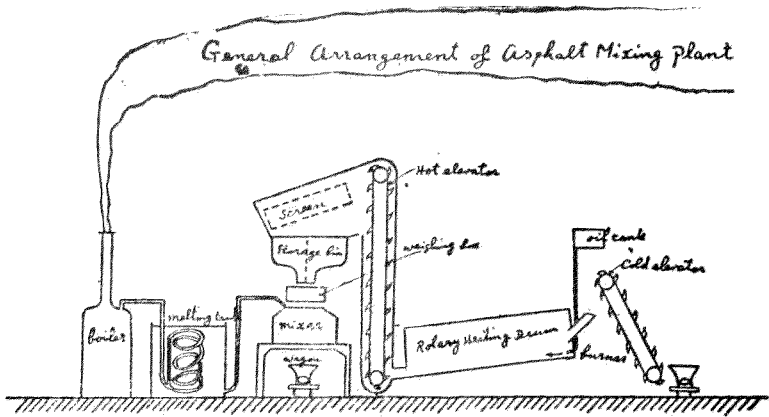 General Arrangement of Asphalt Mixing Plant
Hot elevator
Screen
Storage bin
weighing box
oil tank
Cold elevator
melting tank
boiler
mixer
Rotary Heating Drum
wagon
burner